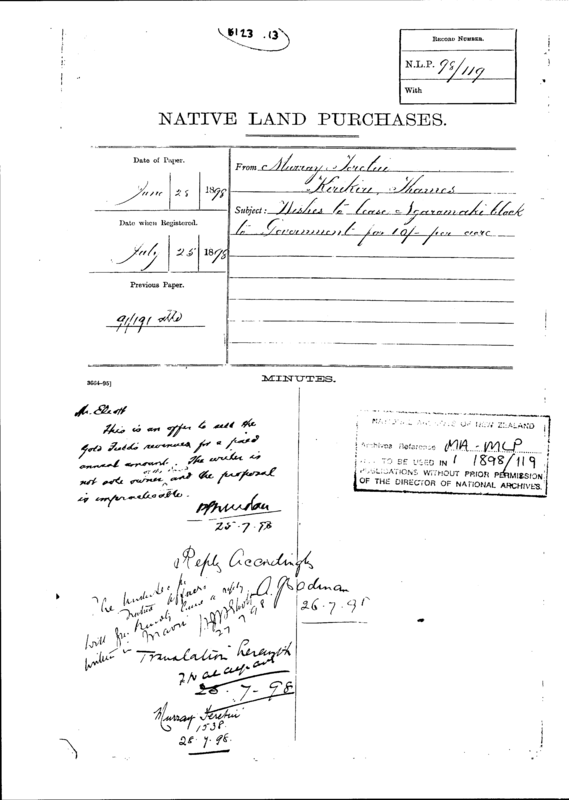 B123 .13
RECORD NUMBER.
N.L.P. 98/119
With
NATIVE LAND PURCHASES.
Date of Paper.
June 25 1898
Date when Registered.
July 25 1898
Previous Paper.
91/191
From Murray
Thames
Subject: Wishes to lease block
to Government for 10/- per acre
3664-95]
MINUTES.
This is an offer to sell the
Gold Fields revenues for a fixed
annual amount. The writer is
not sole owner and the proposal
is impracticable.
25-7-98
Reply Accordingly
26.7.98
The
Native Affairs
will you kindly have a reply
written in Maori
27 7 98
Translation herewith
28-7-98
Murray
1538
28.7.98.
ARCHIVES OF NEW ZEALAND
Archives Reference MA-MLP
TO BE USED IN 1 1898/119
PUBLICATIONS WITHOUT PRIOR PERMISSION
OF THE DIRECTOR OF NATIONAL ARCHIVES.